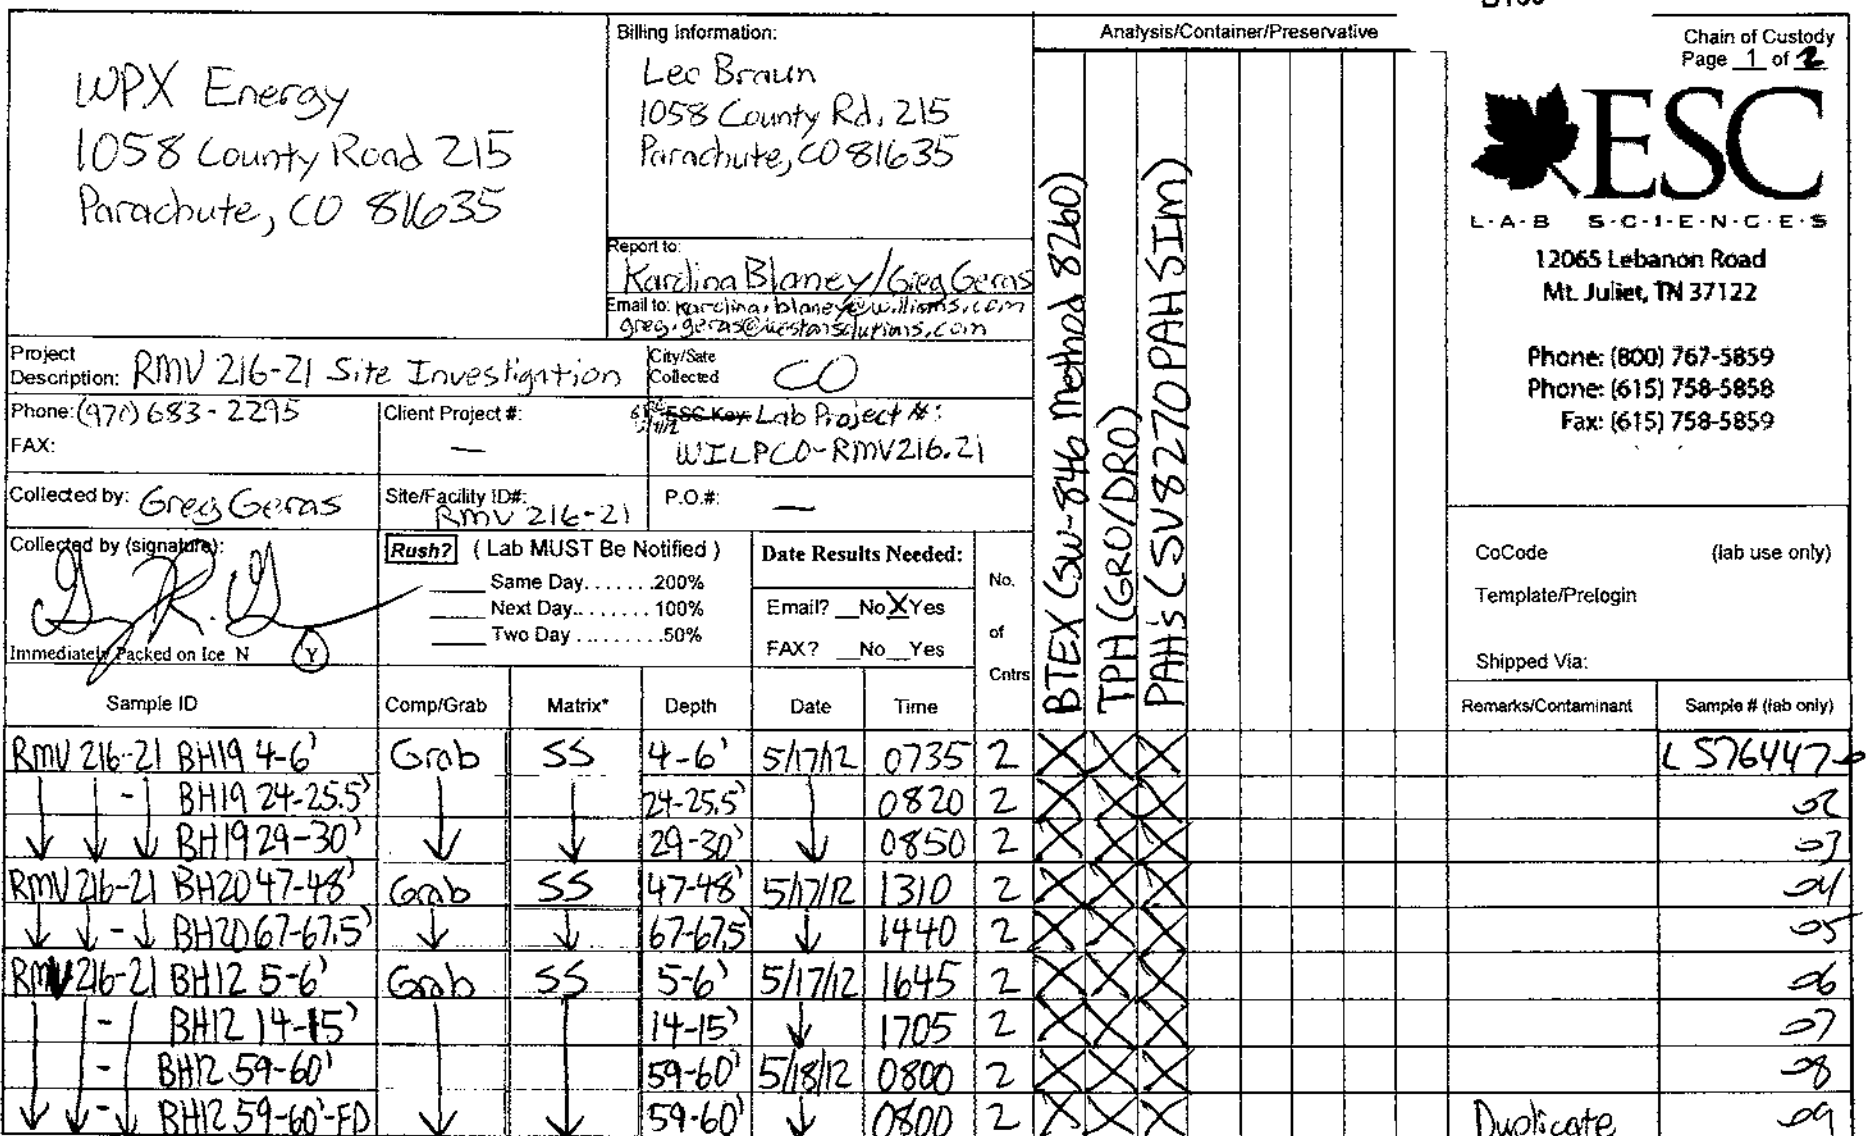 WPX Energy
1058 County Road 215
Parachute, CO 81635
Billing Information:
Lee Braun
1058 County Rd. 215
Parachute, CO 81635
Report to:
Karolina Blaney/Greg Geras
Email to: karolina.blaney@williams.com
greg.geras@westonsolutions.com
Analysis/Container/Preservative
BTEX (SW-846 Method 8260)
TPH (GRO/DRO)
PAH's (SV8270PAHSIM)
Chain of Custody
Page 1 of 2
ESC
L·A·B S·C·I·E·N·C·E·S
12065 Lebanon Road
Mt. Juliet, TN 37122
Phone: (800) 767-5859
Phone: (615) 758-5858
Fax: (615) 758-5859
Project
Description: RMV 216-21 Site Investigation
City/Sate
Collected CO
Phone: (970) 683-2295
FAX:
Client Project #:
—
ESC Key Lab Project #:
WILPCO-RMV216.21
Collected by: Greg Geras
Site/Facility ID#:
RMV 216-21
P.O.#:
—
Collected by (signature):
Immediately Packed on Ice N Y
Rush? ( Lab MUST Be Notified )
Same Day.......200%
Next Day........100%
Two Day..........50%
Date Results Needed:
Email? __No X Yes
FAX? __No__Yes
No.
of
Cntrs
CoCode (lab use only)
Template/Prelogin
Shipped Via:
Sample ID Comp/Grab Matrix* Depth Date Time Remarks/Contaminant Sample # (lab only)
RMV 216-21 BH19 4-6' Grab SS 4-6' 5/17/12 0735 2 X X X L576447-0
↓ ↓ - ↓ BH19 24-25.5' ↓ ↓ 24-25.5' ↓ 0820 2 X X X 02
BH19 29-30' 29-30' 0850 2 X X X 03
RMV 216-21 BH20 47-48' Grab SS 47-48' 5/17/12 1310 2 X X X 04
↓ ↓ - ↓ BH20 67-67.5' ↓ ↓ 67-67.5 ↓ 1440 2 X X X 05
RMV 216-21 BH12 5-6' Grab SS 5-6' 5/17/12 1645 2 X X X 06
- BH12 14-15' 14-15' ↓ 1705 2 X X X 07
- BH12 59-60' 59-60' 5/18/12 0800 2 X X X 08
↓ ↓ - ↓ BH12 59-60'-FD ↓ ↓ 59-60' ↓ 0800 2 X X X Duplicate 09